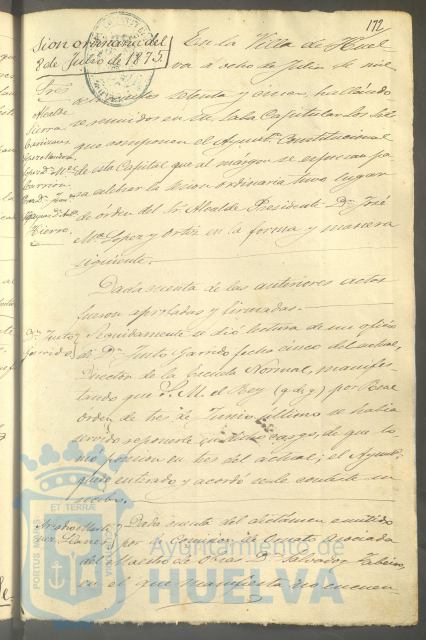 172
Sion ordinaria del
8 de Julio de 1875.
En la Villa de Huel
va a ocho de Julio de mil
Sres
Alcalde
Sierra
Carrion
Hierro
ochocientos setenta y cinco, hallándo
se reunidos en su Sala Capitular los Sres
que componen el Ayunt.º Constitucional
de esta Capital que al margen se expresan pa
ra celebrar la sesion ordinaria tuvo lugar
de órden del Sr. Alcalde Presidente Dn. José
Mª Lopez y Ortiz en la forma y manera
siguiente.
Dada cuenta de las anteriores actas
fueron aprobadas y firmadas.
Dn. Justo
Garrido
Seguidamente se dió lectura de un oficio
de Dn. Justo Garrido fecha cinco del actual,
Director de la Escuela Normal, manifes-
tando que S. M. el Rey (q. d. g.) por Real
órden de tres de Junio último se habia
servido reponerle en dicho cargo, de que to-
mó posesion en tres del actual; el Ayunt.
quedó enterado y acordó se le conteste su
recibo.
Dada cuenta del dictámen emitido
por la Comision de Ornato asociada
del Maestro de Obras D. Salvador
en el que manifiesta no encuen
PORTUS
ET TERRÆ
Ayuntamiento de
HUELVA